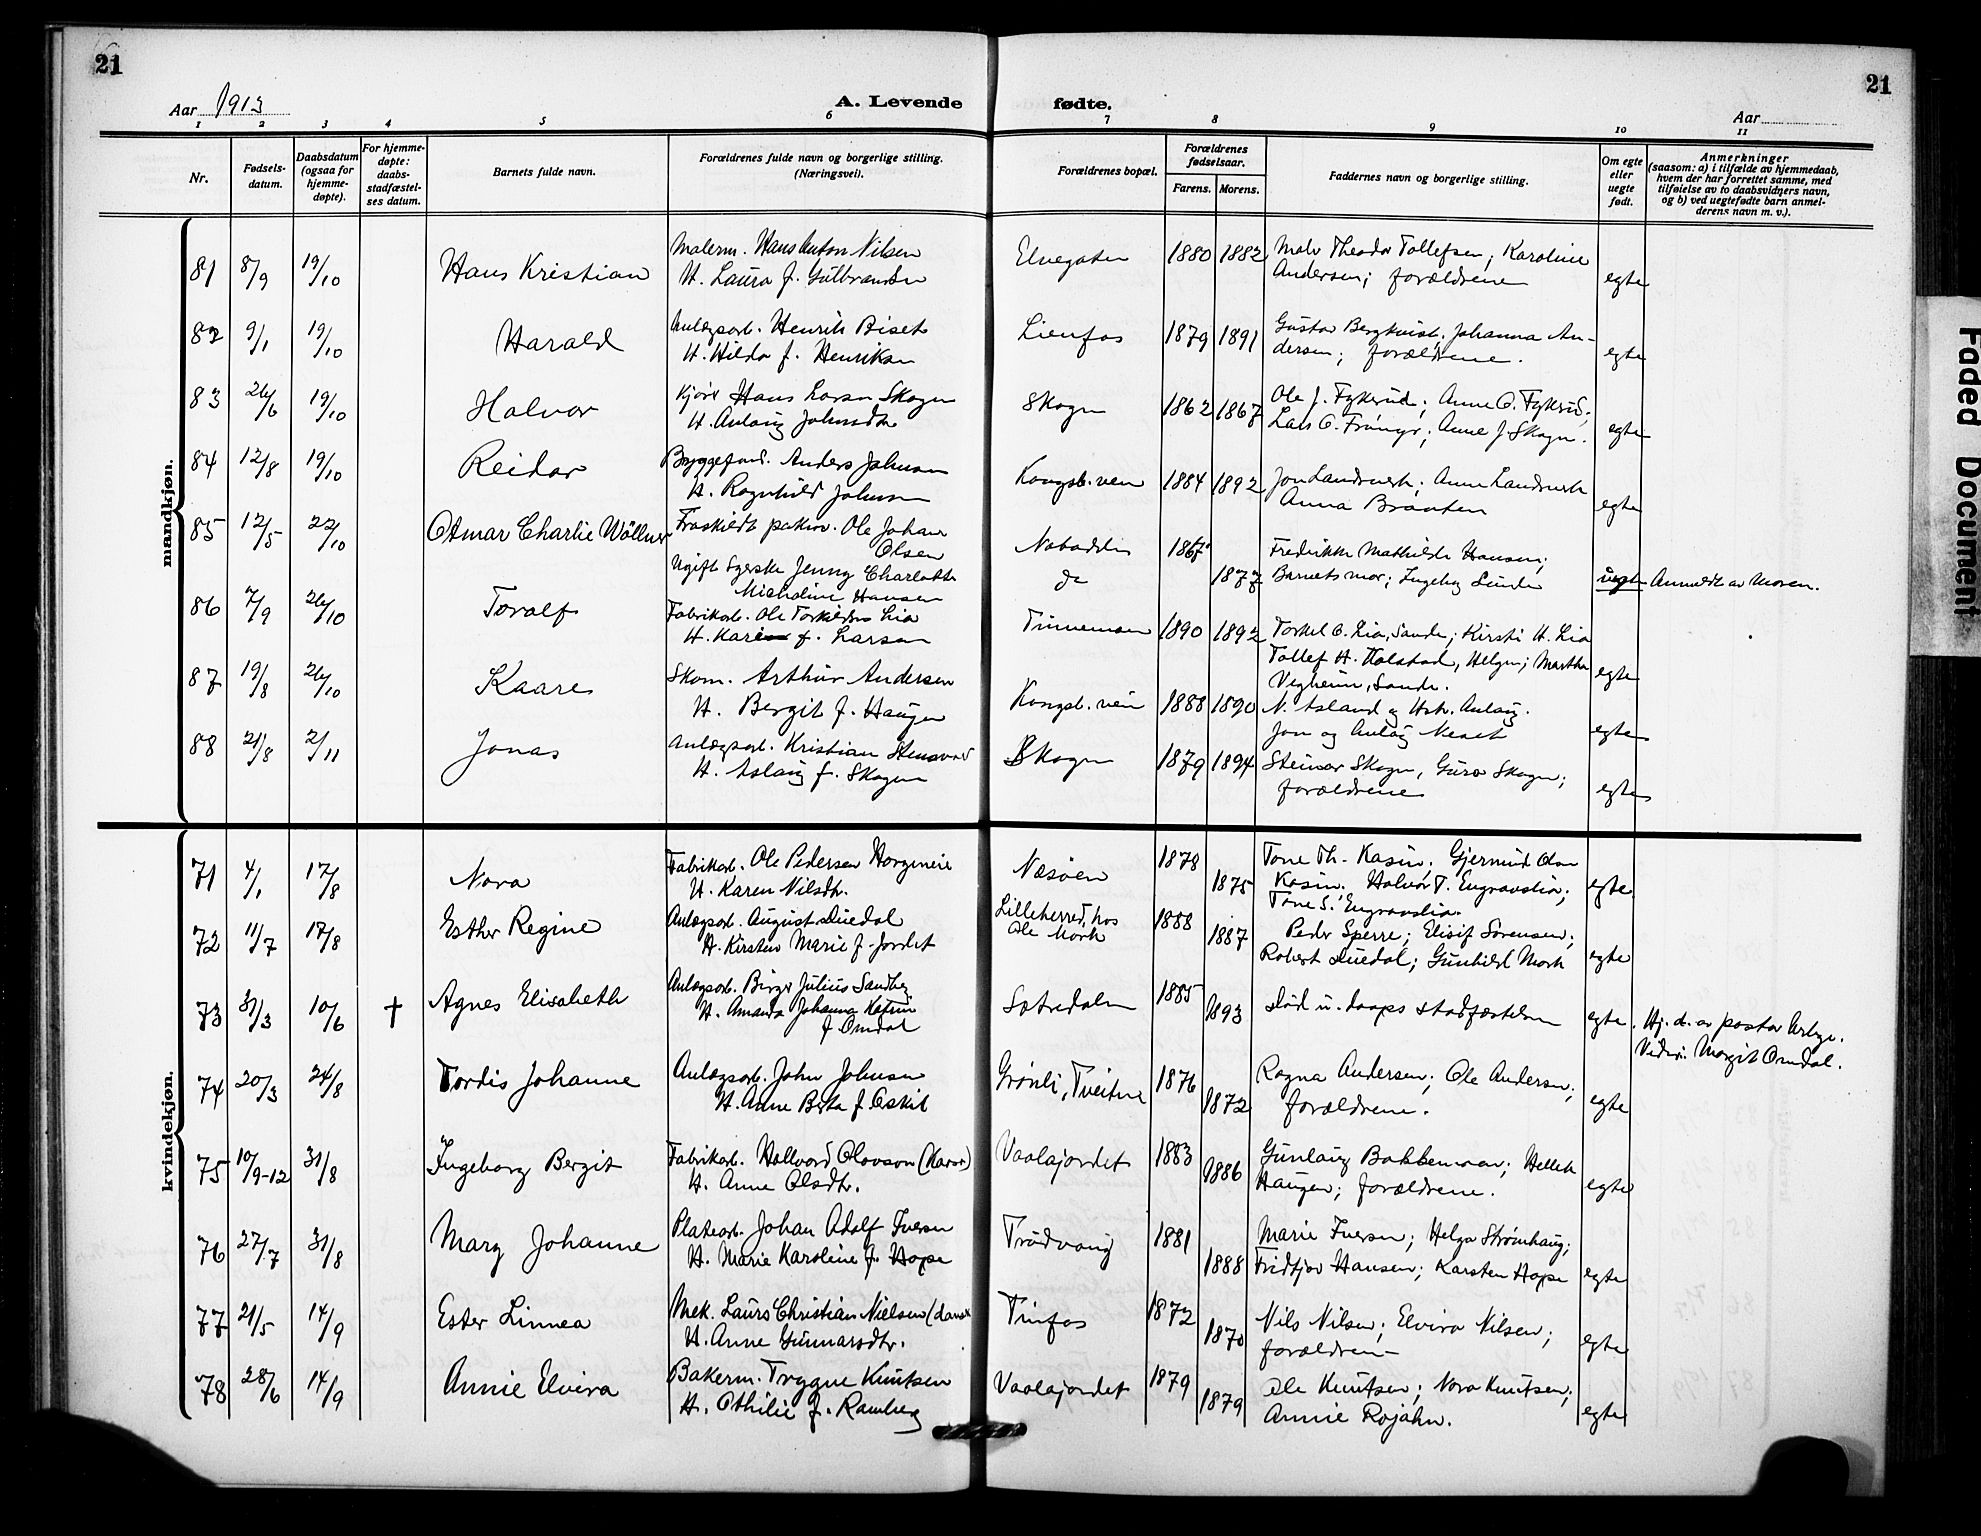 21
21
Aar 1913
A. Levende fødte.
Aar
1 2 3 4 5 6 7 8 9 10 11
Nr.
Fødsels-
datum.
Daabsdatum
(ogsaa for
hjemme-
døpte).
For hjemme-
døpte:
daabs-
stadfæstel-
ses datum.
Barnets fulde navn.
Forældrenes fulde navn og borgerlige stilling.
(Næringsvei).
Forældrenes bopæl.
Forældrenes
fødselsaar.
Farens. Morens.
Faddernes navn og borgerlige stilling.
Om egte
eller
uegte
født.
Anmerkninger
(saasom: a) i tilfælde av hjemmedaab,
hvem der har forrettet samme, med
tilføielse av to daabsvidners navn,
og b) ved uegtefødte barn anmel-
derens navn m. v.).
mandkjøn.
81 8/9 19/10 Hans Kristian Malerm. Hans Anton Nilsen Elvegaten 1880 1882 Malr Theodor Tollefsen; Karoline
H. Laura f. Gulbrandsen Andersen; forældrene egte
82 9/1 19/10 Harald Anlægsarb. Henrik Biset Lienfos 1879 1891 Gustav Bergkvist; Johanna An-
H. Hilda f. Henriksen dersen; forældrene. egte
83 26/6 19/10 Halvor Kjører Hans Larsen Skogen Skogen 1862 1867 Ole J. Fykerud; Anne O. Fykerud;
H. Anlaug Johnsdtr Lars O. ; Anne J. Skogen. egte
84 12/8 19/10 Reidar Byggefond. Anders Johnsen Kongsb. veien 1884 1892 Jon Landsverk; Anne Landsverk
H. Ragnhild Johnsen Anna Braaten egte
85 12/5 22/10 Otmar Charlie Wöllner Fraskildt Ole Johan
Olsen Notodden 1867 Fredrikke Mathilde Hansen;
Ugift Syerske Jenny Charlotte do 1877 Barnets mor; Ingeborg Lunde uegte Anmeldt av Moren.
Micholine Hansen
86 7/9 26/10 Toralf Fabrikarb. Ole Torkildsen Lia Tinnemoen 1890 1892 Torkel O. Lia, Sande; Kirsti H. Lia
H. Karen f. Larsen Tollef H. Kolstad, Helgen; Martha
Vegheim, Sande. egte
87 19/8 26/10 Kaare Skom. Arthur Andersen Kongsb. veien 1888 1890 N. Asland og Hstr. Anlaug.
H. Bergit f. Haugen Jon og Anlaug egte
88 21/8 2/11 Jonas Anlægsarb. Kristian Stensrud Skogen 1879 1894 Steinar Skogen, Guro Skogen;
H. Aslaug f. Skogen forældrene egte
kvindekjøn.
71 4/1 17/8 Nora Fabrikarb. Ole Pedersen Næsøen 1878 Tone Th. Kasin. Gjermund Olsen
H. Karen Nilsdtr. 1875 Kasin. Halvor T. Engravslia; egte
Tone S. Engravslia.
72 11/7 17/8 Esther Regine Anlægsarb. August Duedal Lilleherred, hos
Ole Mork 1888 Peder Sperre; Elisif Sørensen;
H. Kirsten Marie f. Jordet 1887 Robert Duedal; Gunhild Mork egte
73 31/3 10/6 † Agnes Elisabeth Anlægsarb. Birger Julius Sandberg Sætredalen 1885
H. Amanda Johanna Katrin
f. Omdal 1893 Død u. daaps stadfæstelsen egte. Hj. d. av pastor
Vidn: Margit Omdal.
74 20/3 24/8 Tordis Johanne Anlægsarb. John Johnsen Grønli, Tveiten 1876 Ragna Andersen; Ole Andersen;
H. Anne Berta f. Eskil 1872 forældrene. egte
75 10/9-12 31/8 Ingeborg Bergit Fabrikarb. Hallvord Olavson Vaalajordet 1883 Gunlaug Bakkemoen; Hellek
H. Anne Olsdtr. 1886 Haugen; forældrene. egte
76 27/7 31/8 Mary Johanne Platearb. Johan Adolf Iversen Traadvaug 1881 Marie Iversen; Helga Strømhaug;
H. Marie Karoline f. Hope 1888 Fridtjov Hansen; Karsten Hope egte
77 21/5 14/9 Ester Linnea Mek. Laurs Christian Nielsen (dansk Tinfos 1872 Nils Nilsen; Elvira Nilsen;
H. Anne Gunnarsdtr. 1870 forældrene egte
78 28/6 14/9 Annie Elvira Bakerm. Trygve Knutsen Vaalajordet 1879 Ole Knutsen; Nora Knutsen;
H. Othilie f. Ramberg 1879 Annie Rojahn. egte
Faded Document